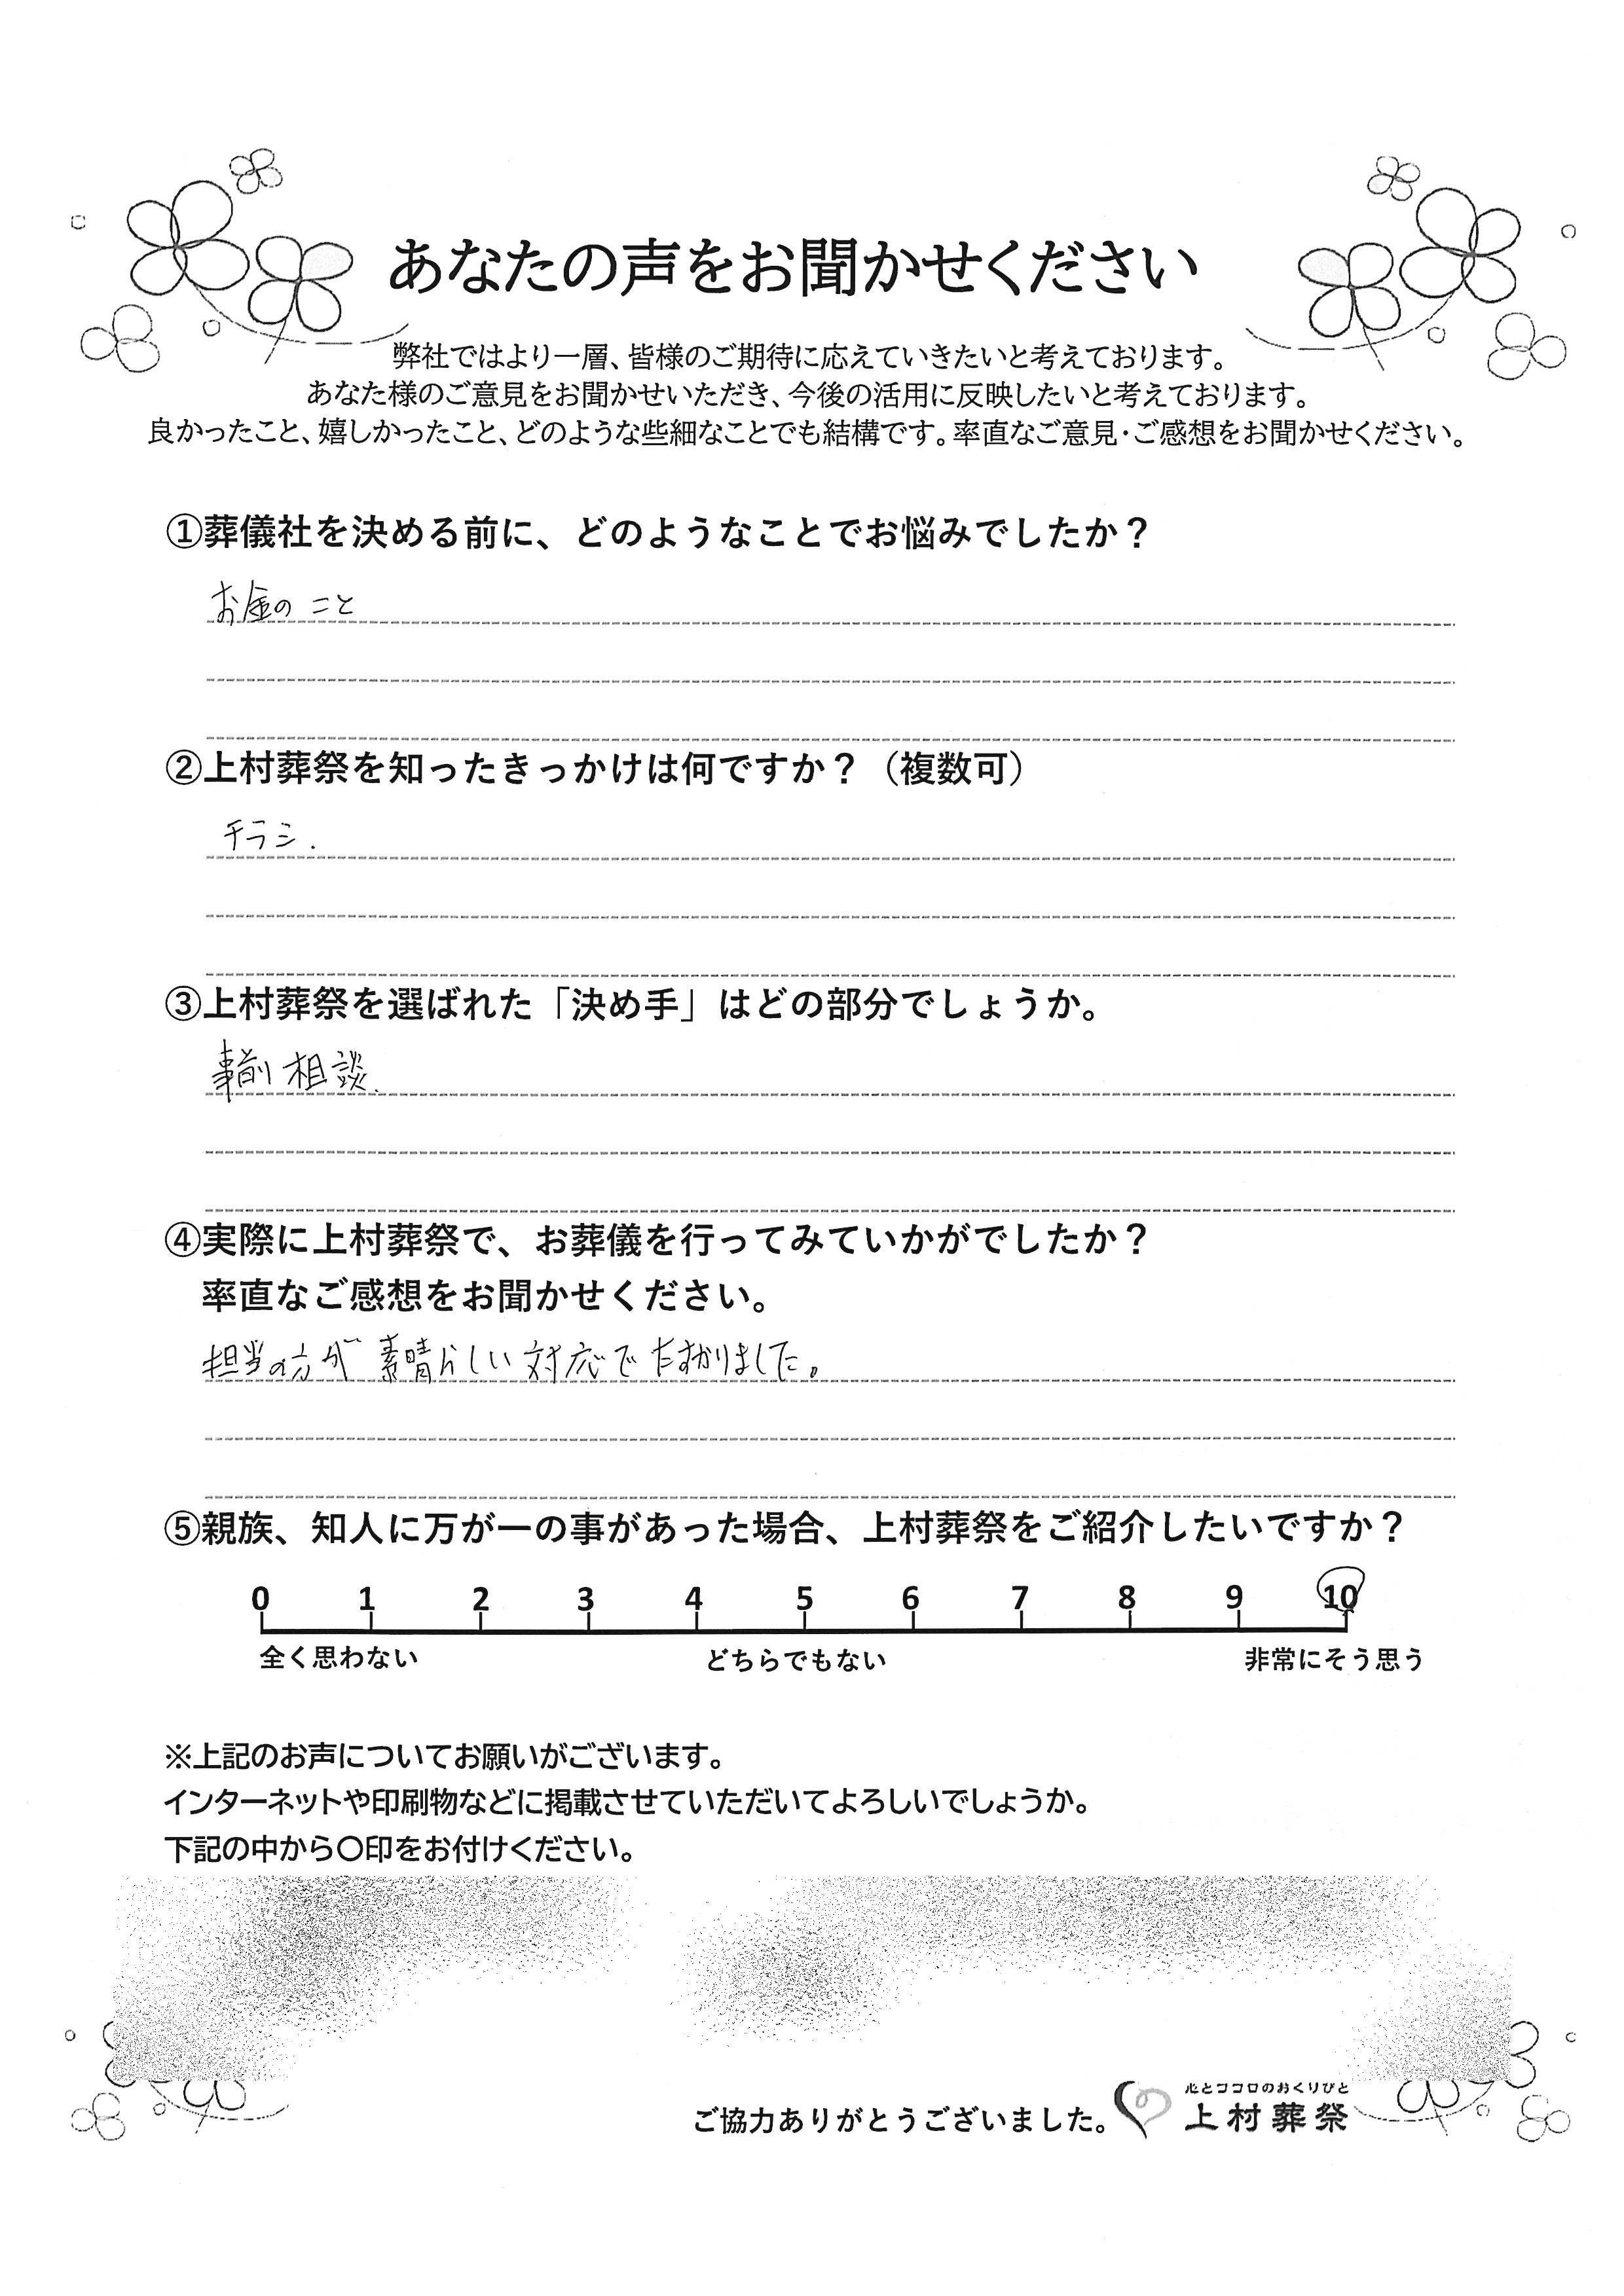 あなたの声をお聞かせください
弊社ではより一層、皆様のご期待に応えていきたいと考えております。
あなた様のご意見をお聞かせいただき、今後の活用に反映したいと考えております。
良かったこと、嬉しかったこと、どのような些細なことでも結構です。率直なご意見・ご感想をお聞かせください。
①葬儀社を決める前に、どのようなことでお悩みでしたか？
お金のこと
②上村葬祭を知ったきっかけは何ですか？（複数可）
チラシ.
③上村葬祭を選ばれた「決め手」はどの部分でしょうか。
事前相談.
④実際に上村葬祭で、お葬儀を行ってみていかがでしたか？
率直なご感想をお聞かせください。
担当の方が素晴らしい対応でたすかりました。
⑤親族、知人に万が一の事があった場合、上村葬祭をご紹介したいですか？
0 1 2 3 4 5 6 7 8 9 10
全く思わない どちらでもない 非常にそう思う
※上記のお声についてお願いがございます。
インターネットや印刷物などに掲載させていただいてよろしいでしょうか。
下記の中から〇印をお付けください。
心とココロのおくりびと
ご協力ありがとうございました。 上村葬祭